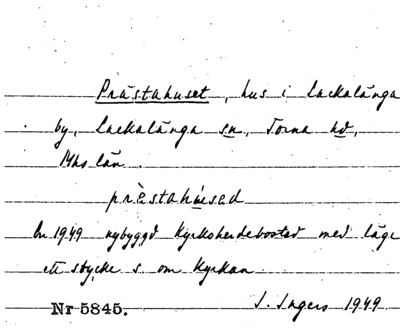 Prästahuset, hus i Lackalänga
by, Lackalänga sn, Torna hd,
Mhs län.
prèstahúsed
En 1949 nybyggd kyrkoherdebostad med läge
ett stycke s. om kyrkan.
Nr 5845. I. Ingers 1949